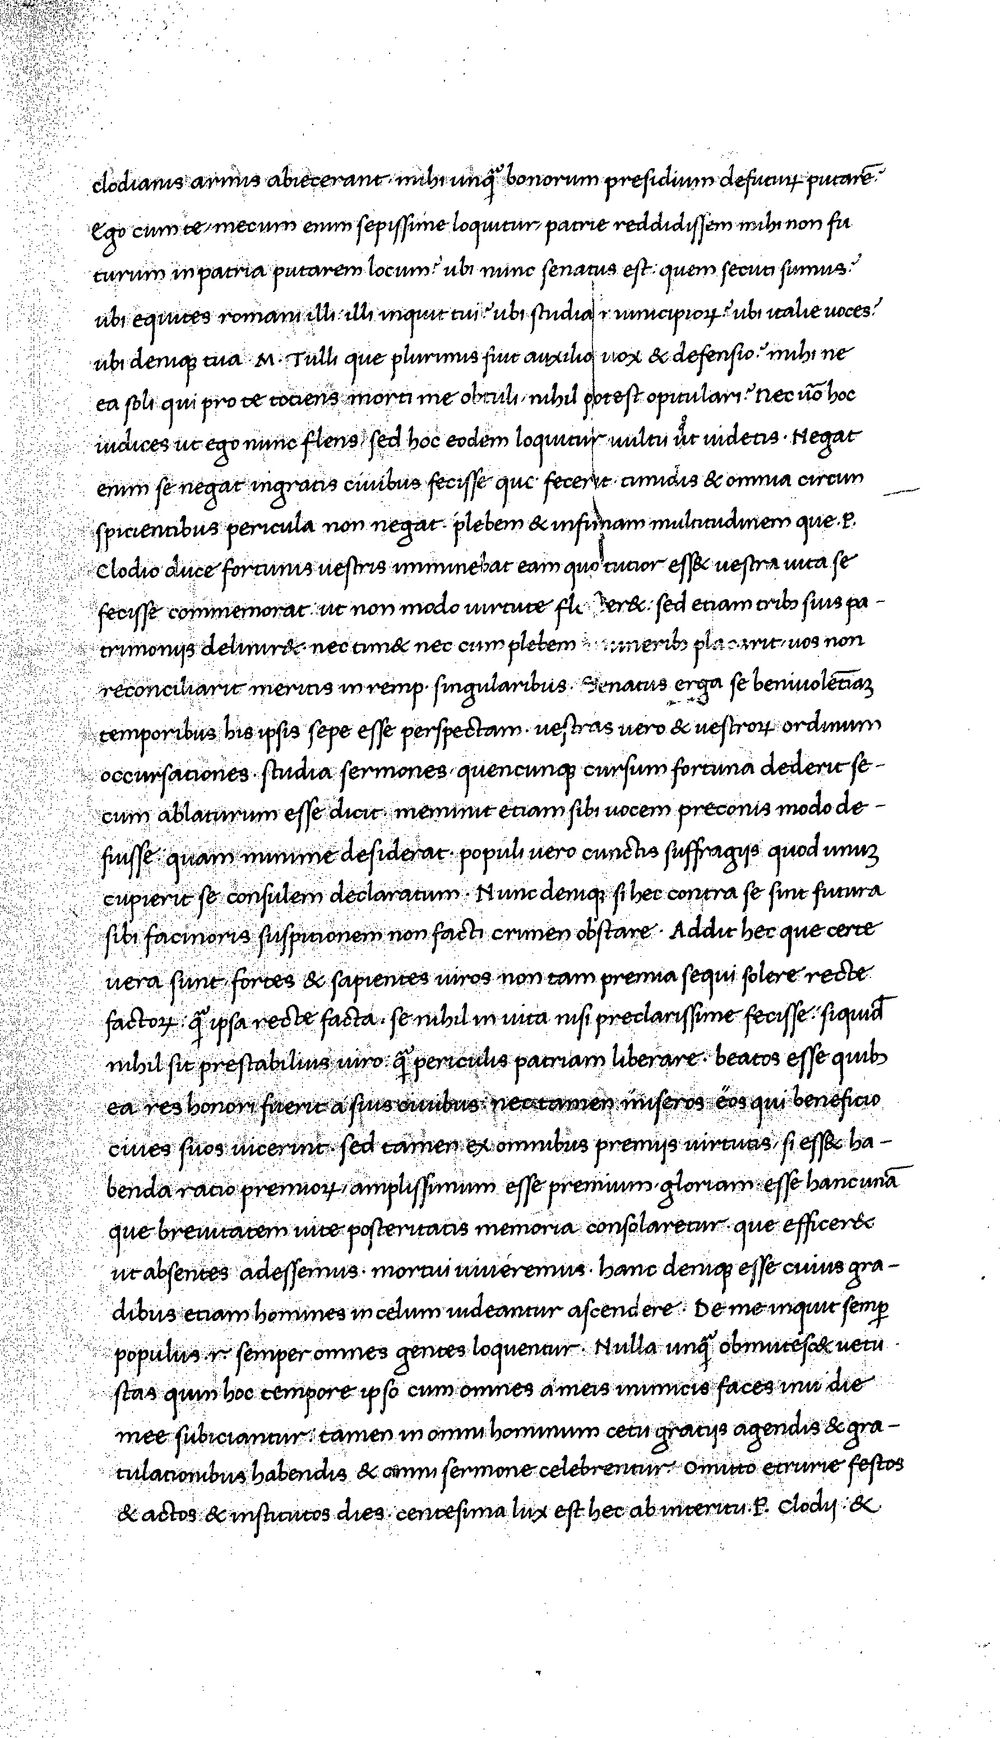 clodianis armis abiecerant. mihi unq̃ bonorum presidium defuturꝝ putarē?
Ego cum te, mecum enim sepissime loquitur, patrie reddidissem mihi non fu
turum in patria putarem locum? ubi nunc senatus est. quem secuti sumus?
ubi equites romani illi. illi inquit tui? ubi studia municipiorꝝ? ubi italie uoces?
ubi deniqꝫ tua .M. Tulli que plurimis fuit auxilio uox & defensio? mihi ne
ea soli qui pro te totiens morti me obtuli. nihil potest opitulari? Nec uō hoc
iudices ut ego nunc flens. sed hoc eodem loquitur uultu ut uidetis. Negat
enim se negat ingratis ciuibus fecisse que fecerit. timidis & omnia circun
spicientibus pericula non negat. plebem & infimam multitudinem que .P.
Clodio duce fortunis uestris imminebat eam quo tutior ess& uestra uita se
fecisse commemorat. ut non modo uirtute sed etiam tribꝫ suis pa-
trimoniis delinir&. nec tim& nec cum plebem muneribꝫ placarit. uos non
reconciliarit meritis in remp. singularibus. Senatus erga se beniuolētiaꝫ
temporibus his ipsis sepe esse perspectam. uestras uero & uestrorꝝ ordinum
occursationes. studia sermones. quencunqꝫ cursum fortuna dederit se-
cum ablaturum esse dicit. meminit etiam sibi uocem preconis modo de-
fuisse. quam minime desiderat. populi uero cunctis suffragijs quod unuꝫ
cupierit se consulem declaratum. Nunc deniqꝫ si hec contra se sint futura
sibi facinoris suspitionem non facti crimen obstare. Addit hec que certe
uera sunt. fortes & sapientes uiros non tam premia sequi solere recte
factorꝝ. q̃ ipsa recte facta. se nihil in uita nisi preclarissime fecisse. siquid̄
nihil sit prestabilius uiro. q̃ periculis patriam liberare. beatos esse quibꝫ
ea res honori fuerit a suis ciuibus. nec tamen miseros eos qui beneficio
ciues suos uicerint. sed tamen ex omnibus premijs uirtutis, si ess& ha-
benda ratio premiorꝝ, amplissimum esse premium. gloriam. esse hanc unā
que breuitatem uite posteritatis memoria consolaretur. que efficer&
ut absentes adessemus. mortui uiueremus. hanc deniqꝫ esse cuius gra-
dibus etiam homines in celum uideantur ascendere. De me inquit semp̱
populus .r. semper omnes gentes loquentur. Nulla unq̃ obmutesc& uetu
stas quin hoc tempore ipso cum omnes a meis inimicis faces inui die
mee subiciantur. tamen in omni hominum cetu gratijs agendis & gra-
tulationibus habendis & omni sermone celebrentur. Omitto etrurie festos
& actos & institutos dies. centesima lux est hec ab interitu .P. Clodij. &